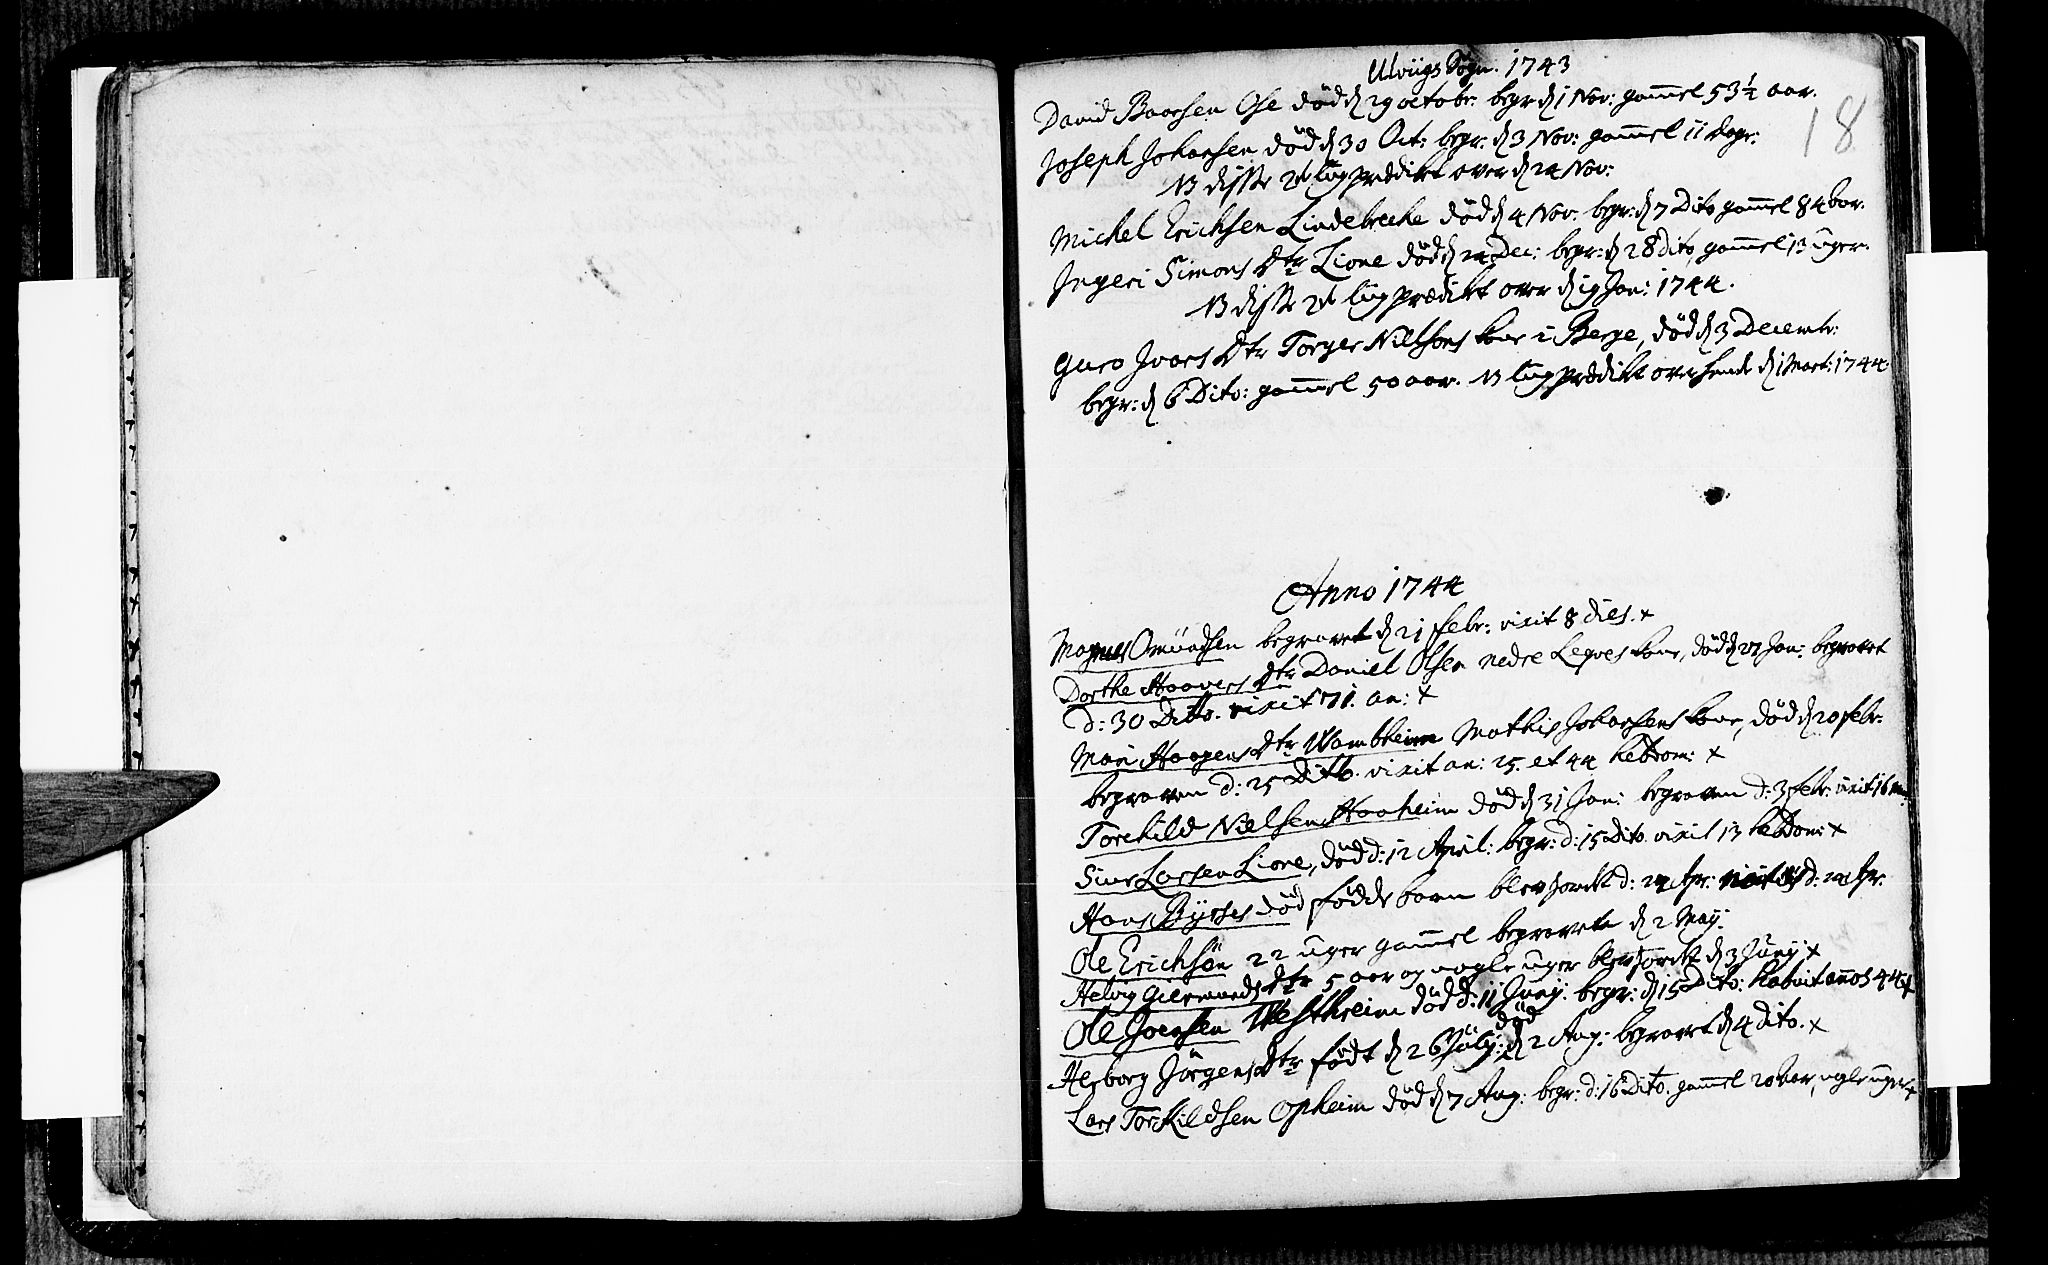 Ulviigs Sogn. 1743
18
David Baarsen Ose død d 29 octobr: begr d 1 Nov: gammel 53½ aar.
Joseph Johansen død d 30 Oct: begr: d 3 Nov: gammel 11 dage:
NB disse 2de liigprædiket over d 24 Nov:
Michel Erichsen Lindebrecke død d 4 Nov: begr: d 7 Dito gammel 84 aar.
Ingeri Simons Dtr Lione død d 24 Dec: begr: d 28 dito, gammel 13 uger.
NB disse 2de liigprædiket over d 19 Jan: 1744.
Guro Ivars Dtr Torger Nielsens kone i Berge, død d 3 Decembr:
begr: d 6 Dito: gammel 50 aar. NB liigprædiket over hende d 1 Mart: 1744.
Anno 1744
Magnus Omundsen begravet d 21 Febr: vixit 8 dies. x
Dorthe Haavers Dtr Daniel Olsen nedre Legves kone, død d 27 Jan: begravet
d: 30 Ditto. vixit 71. an: x
Mari Haagens Dtr Wambheim Mathis Johansens kone, død d 20 febr:
begraven d: 25 Ditto. vixit an: 25. et 44 hebdom: x
Torchild Nielsen Haaheim død d 31 Jan: begraven d: 3 febr: vixit 16
Siur Larsen Lione, død d: 12 April: begr: d: 15 Dito. vixit 13 hebdom: x
Hans Bysses død fødde barn blev jordet d: 24 Apr: d: 24 Apr.
Ole Erichsøn 22 uger gammel begravet d 2 Maij:
Helvig Giermunds Dtr 5 aar og nogle uger blev jordet d 3 Junij x
Ole Joensen Westheim død d: 11 Junij: begr: d 15 Dito: habuit annos 44 x
Herborg Jørgens Dtr født d 26 Julij: død d 2 Aug: begravet d 4 dito. x
Lars Torchildsen Opheim død d 7 Aug: begr: d: 16 Dito. gammel 20 aar, nogle uger x